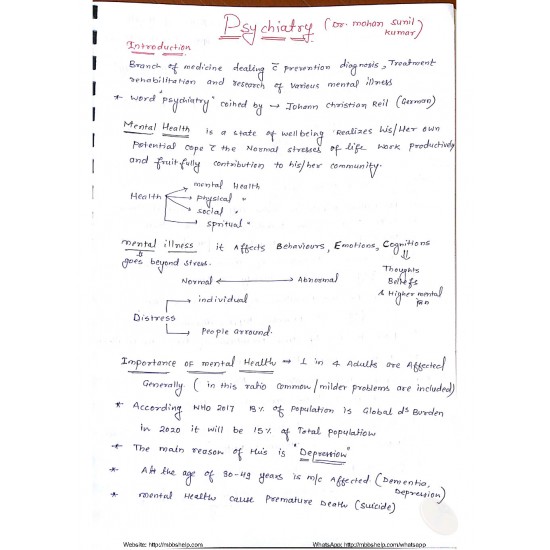 Psychiatry (Dr. mohan sunil kumar)
Introduction
Branch of medicine dealing c̄ prevention diagnosis, Treatment
rehabilitation and research of various mental illness
* word "psychiatry" coined by → Johann Christian Reil (German)
Mental Health is a state of wellbeing Realizes his/Her own
potential cope c̄ the Normal stresses of life work productively
and fruitfully contribution to his/her community.
Health → mental Health
→ physical "
→ social "
→ spritual "
mental illness it Affects Behaviours, Emotions, Cognitions
goes beyond stress.
Thoughts
Beliefs
& Higher mental
fxn
Normal ↔ Abnormal
Distress → individual
→ People arround.
Importance of mental Health → 1 in 4 Adults are Affected
Generally ( in this ratio common/milder problems are included)
* According WHO 2017 13% of population is Global ds Burden
in 2020 it will be 15% of Total population
* The main reason of this is "Depression"
* At the age of 30-49 years is m/c Affected (Dementia,
Depression)
* mental Health cause Premature Death (Suicide)
Website: http://mbbshelp.com
WhatsApp: http://mbbshelp.com/whatsapp